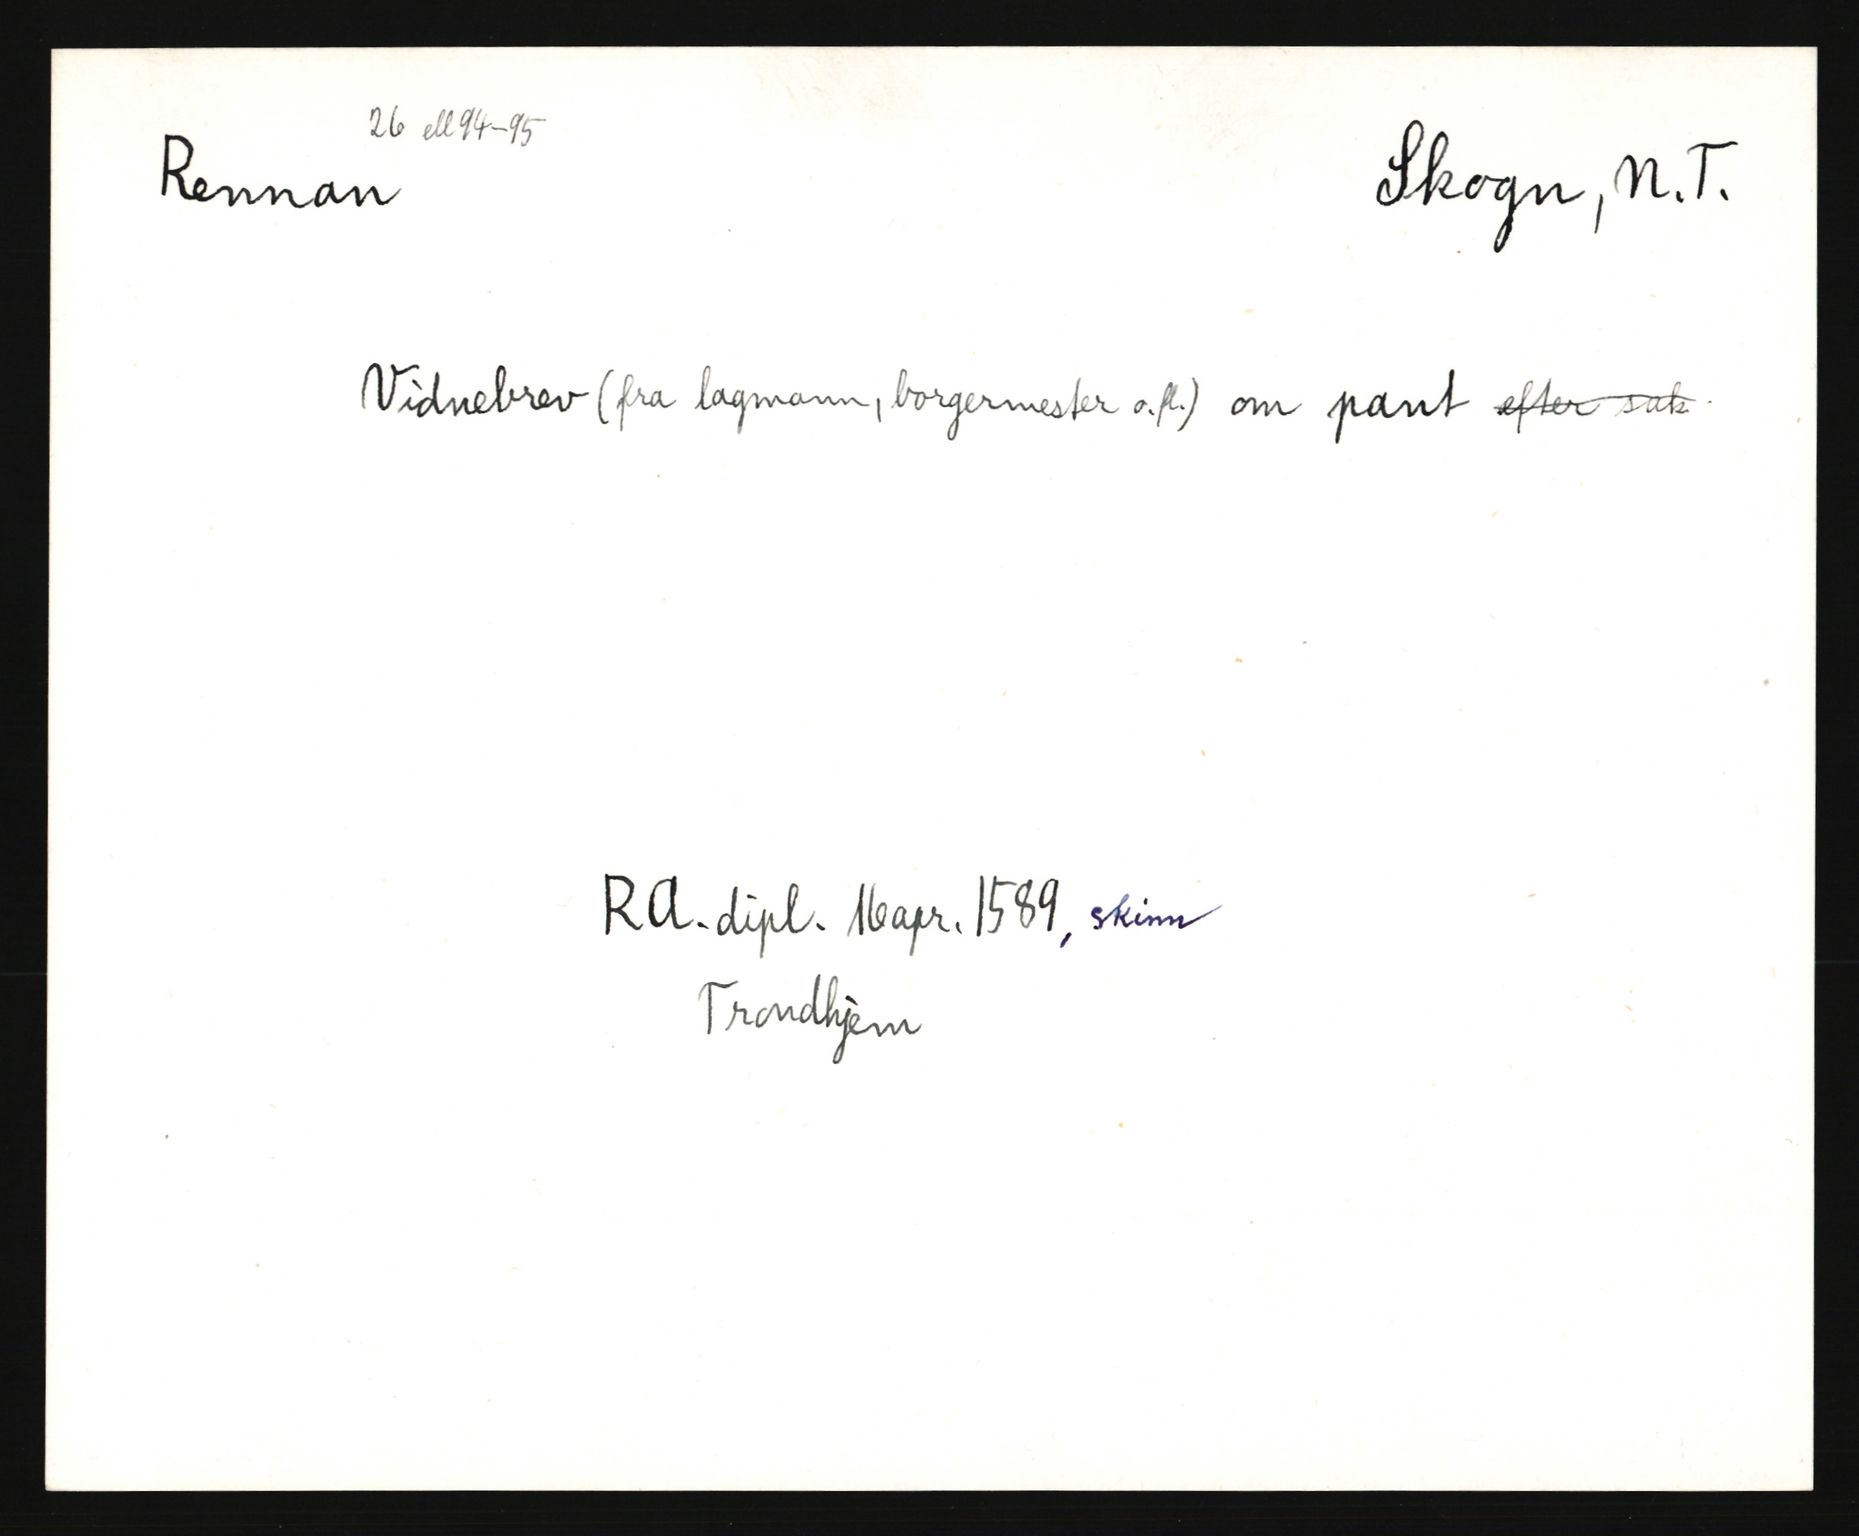 26 ell 94-95
Rennan
Skogn, N.T.
Vidnebrev (fra lagmann, borgermester o.fl.) om pant efter sak.
RA. dipl. 16 apr. 1589, skinn
Trondhjem